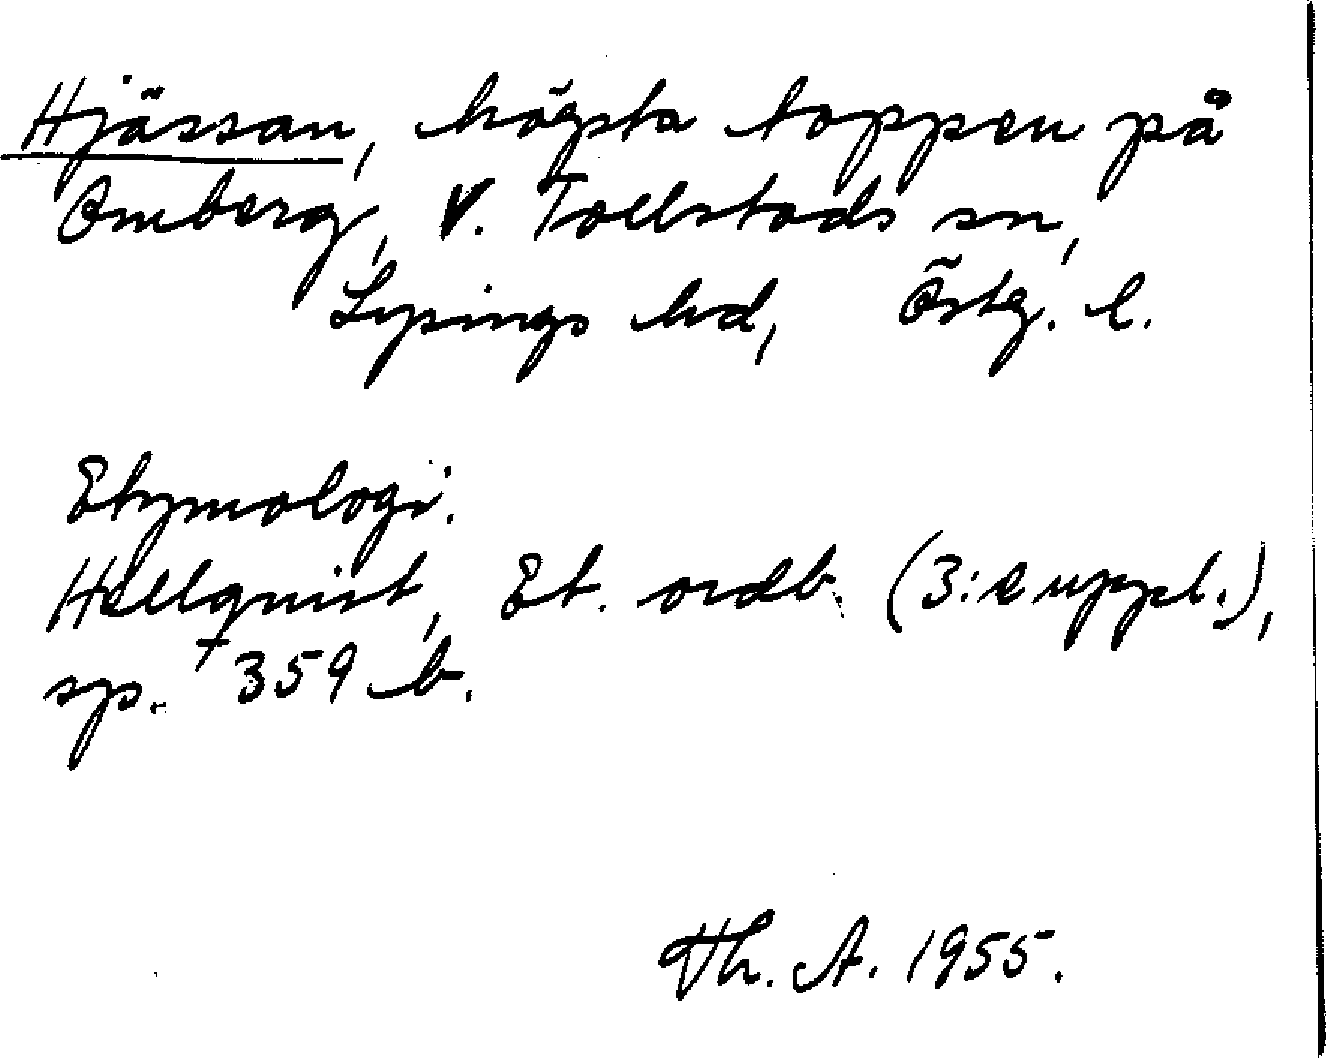 Hjässan, högsta toppen på
Omberg, V. Tollstads sn,
Lysings hd, Östg. l.
Etymologi.
Hellquist, Et. ordb. (3:e uppl.),
sp. 359 b.
Th. A. 1955.